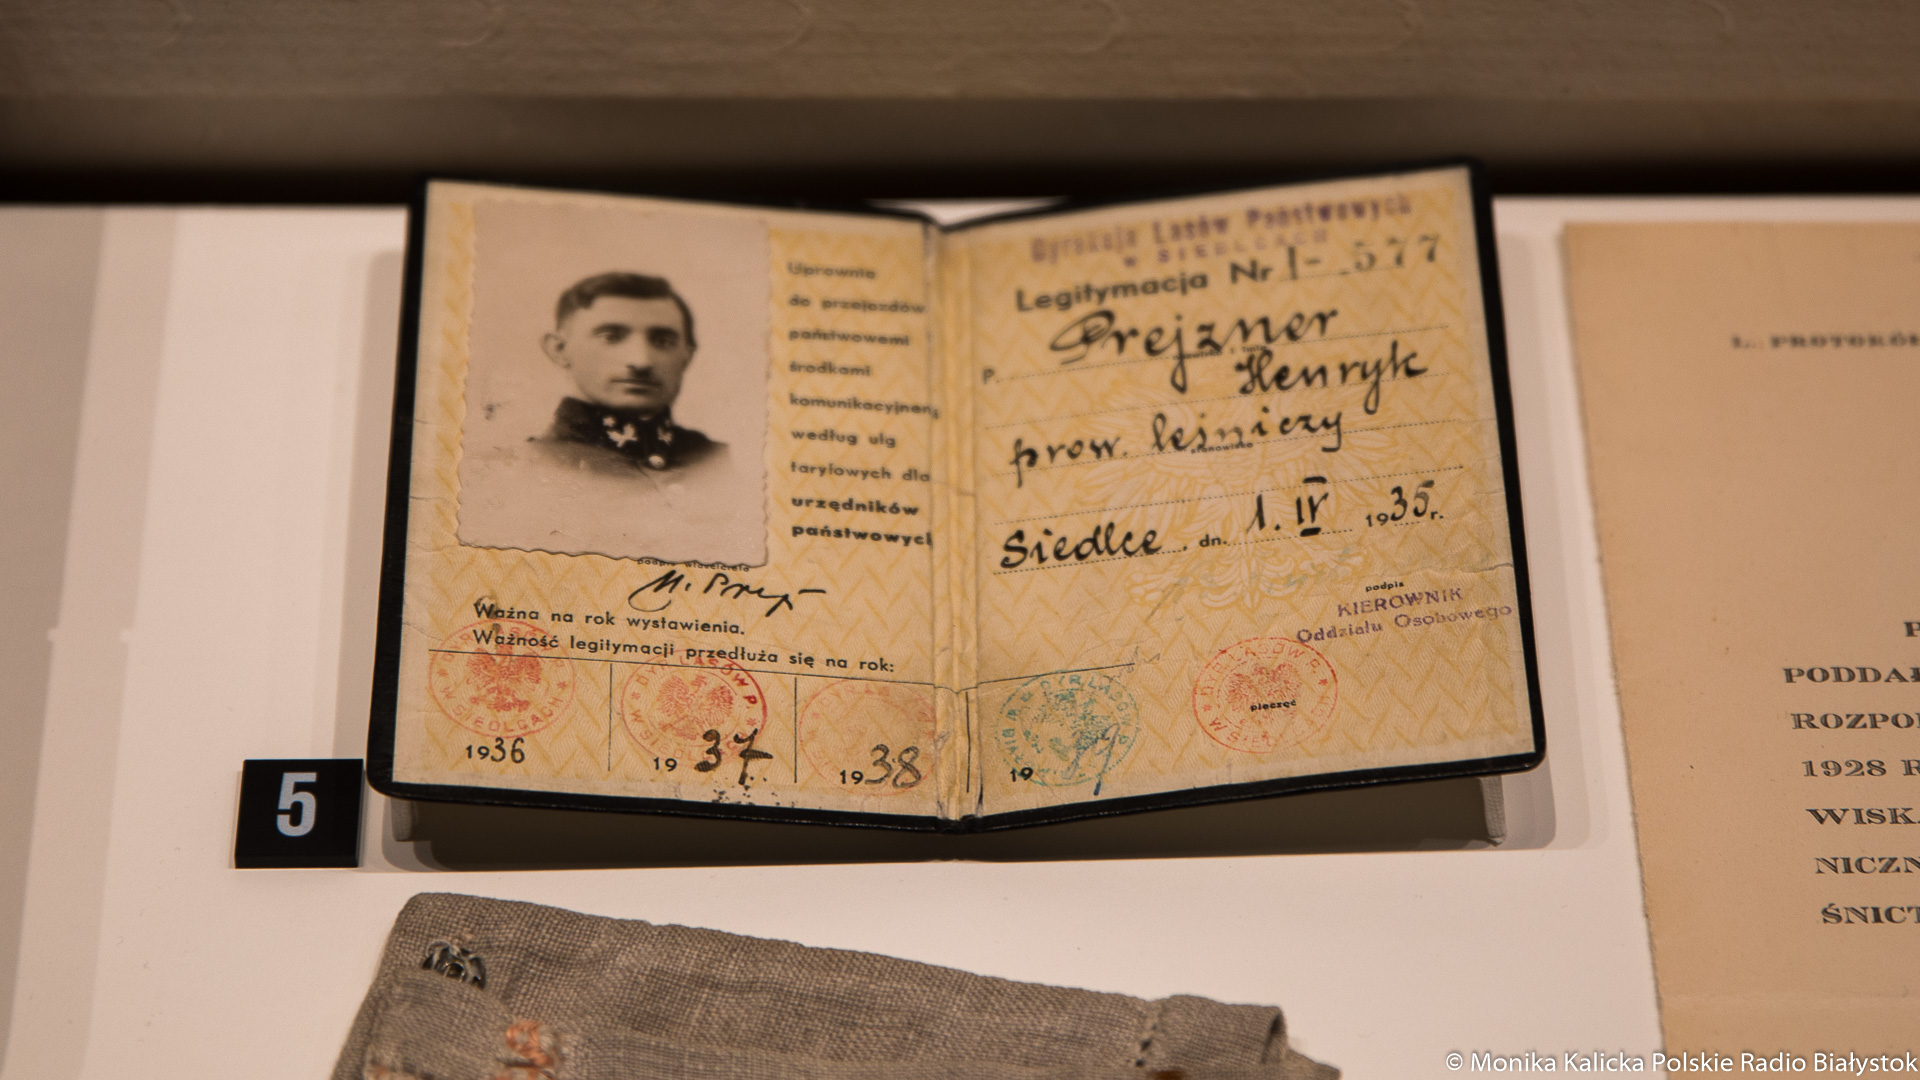 Uprawnia
do przejazdów
państwowemi
środkami
komunikacyjnemi
według ulg
taryfowych dla
urzędników
państwowych
podpis właściciela
Ważna na rok wystawienia.
Ważność legitymacji przedłuża się na rok:
DYR. LASÓW P.
W SIEDLCACH
1936
1937
1938
Dyrekcja Lasów Państwowych
W SIEDLCACH
Legitymacja Nr I- 577
P. Prejzner
Henryk
prow. leśniczy
stanowisko
Siedlce, dn. 1. IV 1935 r.
podpis
KIEROWNIK
Oddziału Osobowego
DYR. LASÓW P.
pieczęć
19
5
L. PROTOKÓŁ
P
PODDA
ROZPO
1928 R
WISK
NICZN
ŚNICT
© Monika Kalicka Polskie Radio Białystok